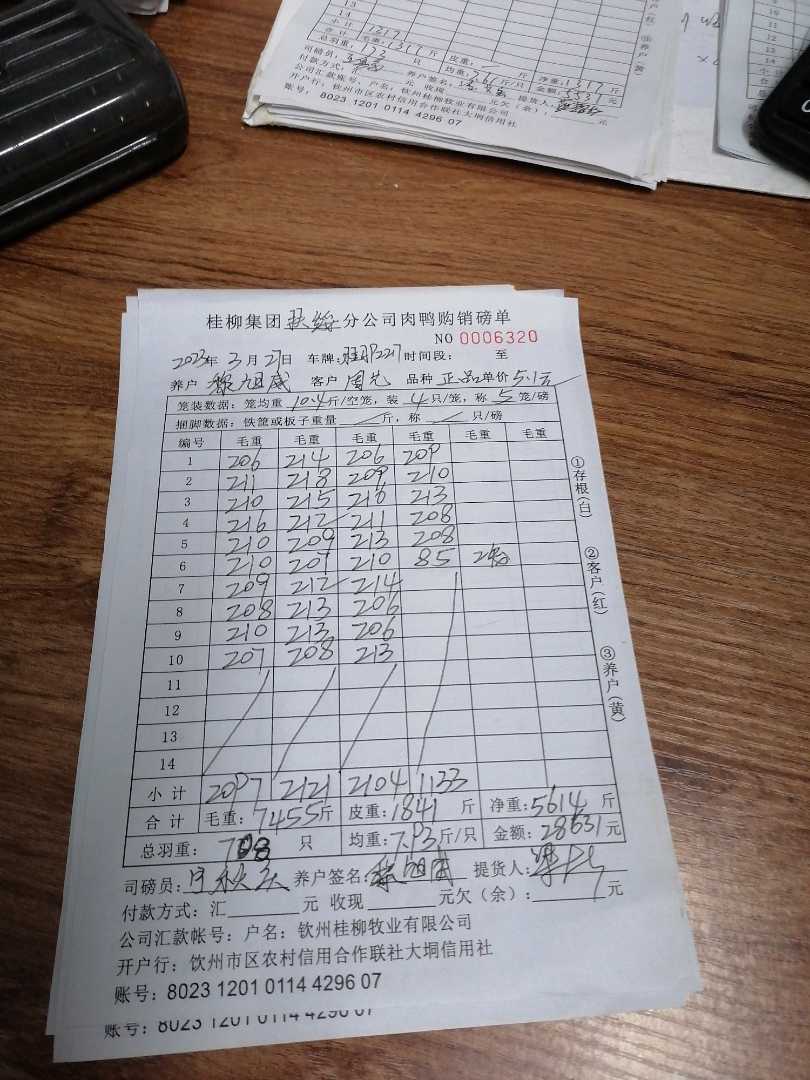 13
14
小计 1217
合计 毛重: 1317 斤 皮重: 斤 净重: 1317 斤
总羽重: 173 只 均重: 斤/只 金额: 元
司磅员: 养户签名: 提货人:
付款方式: 汇 元 收现 元欠(余): 元
公司汇款帐号: 户名: 钦州桂柳牧业有限公司
开户行: 钦州市区农村信用合作联社大垌信用社
账号: 8023 1201 0114 4296 07
桂柳集团扶绥分公司肉鸭购销磅单
NO 0006320
2023年 3月 27日 车牌: 时间段: 至
养户 黎旭威 客户 周艺 品种 正品 单价 5.1元
笼装数据: 笼均重 10.4 斤/空笼, 装 4 只/笼, 称 5 笼/磅
捆脚数据: 铁筐或板子重量 / 斤, 称 / 只/磅
编号 毛重 毛重 毛重 毛重 毛重 毛重
1 206 214 206 209
2 211 218 209 210
3 210 215 216 213
4 216 212 211 208
5 210 209 213 208
6 210 207 210 85 2笼
7 209 212 214
8 208 213 206
9 210 213 206
10 207 208 213
11
12
13
14
小计 2097 2121 2104 1133
合计 毛重: 7455 斤 皮重: 1841 斤 净重: 5614 斤
总羽重: 708 只 均重: 7.93 斤/只 金额: 28631 元
司磅员: 养户签名: 黎旭威 提货人:
付款方式: 汇 元 收现 元欠(余): 元
公司汇款帐号: 户名: 钦州桂柳牧业有限公司
开户行: 钦州市区农村信用合作联社大垌信用社
账号: 8023 1201 0114 4296 07
账号: 8023 1201 0114 4296 07
①存根(白)
②客户(红)
③养户(黄)